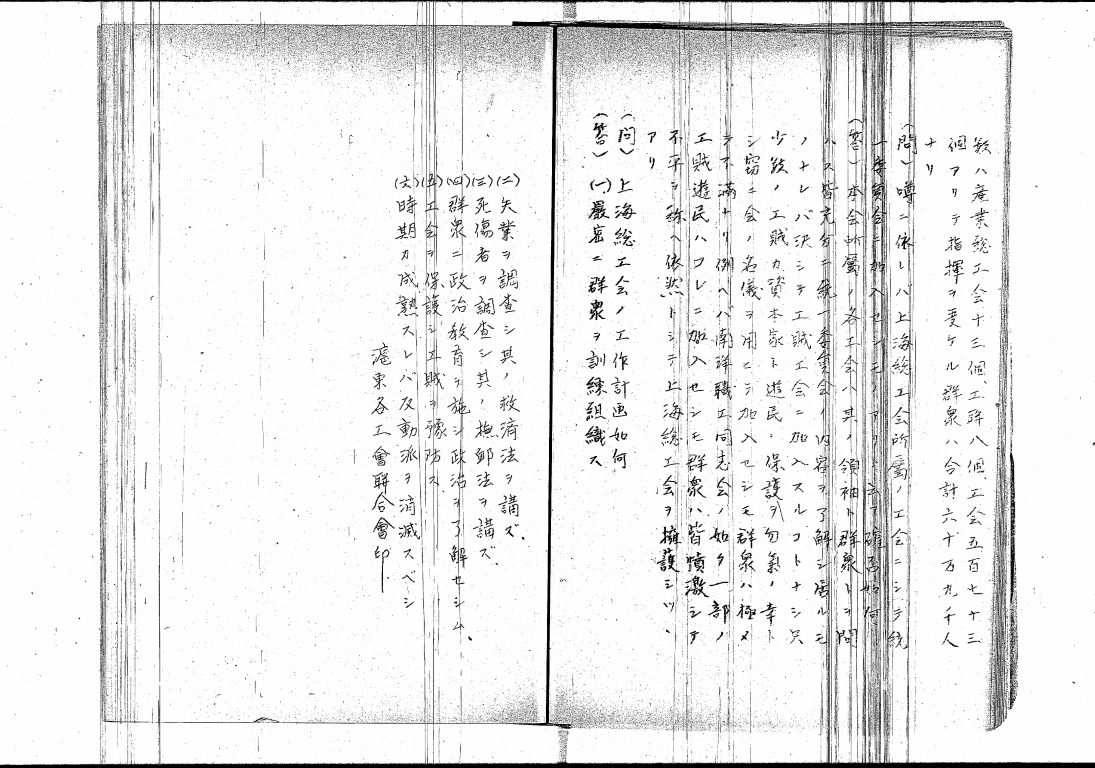 数ハ産業総工会十三個、工聯八個、工会五百七十三
個アリテ指揮ヲ受ケル群衆ハ合計六十万九千人
ナリ
(問) 噂ニ依レバ上海総工会所属ノ工会ニシテ統
一委員会ニ加入セシモノアリト云フ確否如何
(答) 本会所属ノ各工会ハ其ノ領袖ト群衆トヲ問
ハス皆充分ニ統一委員会ノ内容ヲ了解シ居ルモ
ノナレバ決シテ工賊工会ニ加入スルコトナシ只
少数ノ工賊カ資本家ト遊民ノ保護ヲ
シ窃ニ会ノ名儀ヲ用ヒテ加入セシモ群衆ハ極メ
テ不満ナリ例ヘバ南洋職工同志会ノ如ク一部ノ
工賊遊民ハコレニ加入セシモ群衆ハ皆憤激シテ
不平ヲ称ヘ依然トシテ上海総工会ヲ擁護シツヽ
アリ
(問) 上海総工会ノ工作計画如何
(答) (一)厳密ニ群衆ヲ訓練組織ス
(二)失業ヲ調査シ其ノ救済法ヲ講ズ、
(三)死傷者ヲ調査シ其ノ撫卹法ヲ講ズ
(四)群衆ニ政治教育ヲ施シ政治ヲ了解セシム、
(五)工会ヲ保護シ工賊ヲ豫防ス
(六)時期カ成熟スレバ反動派ヲ消滅スベシ
滬東各工會聯合會印